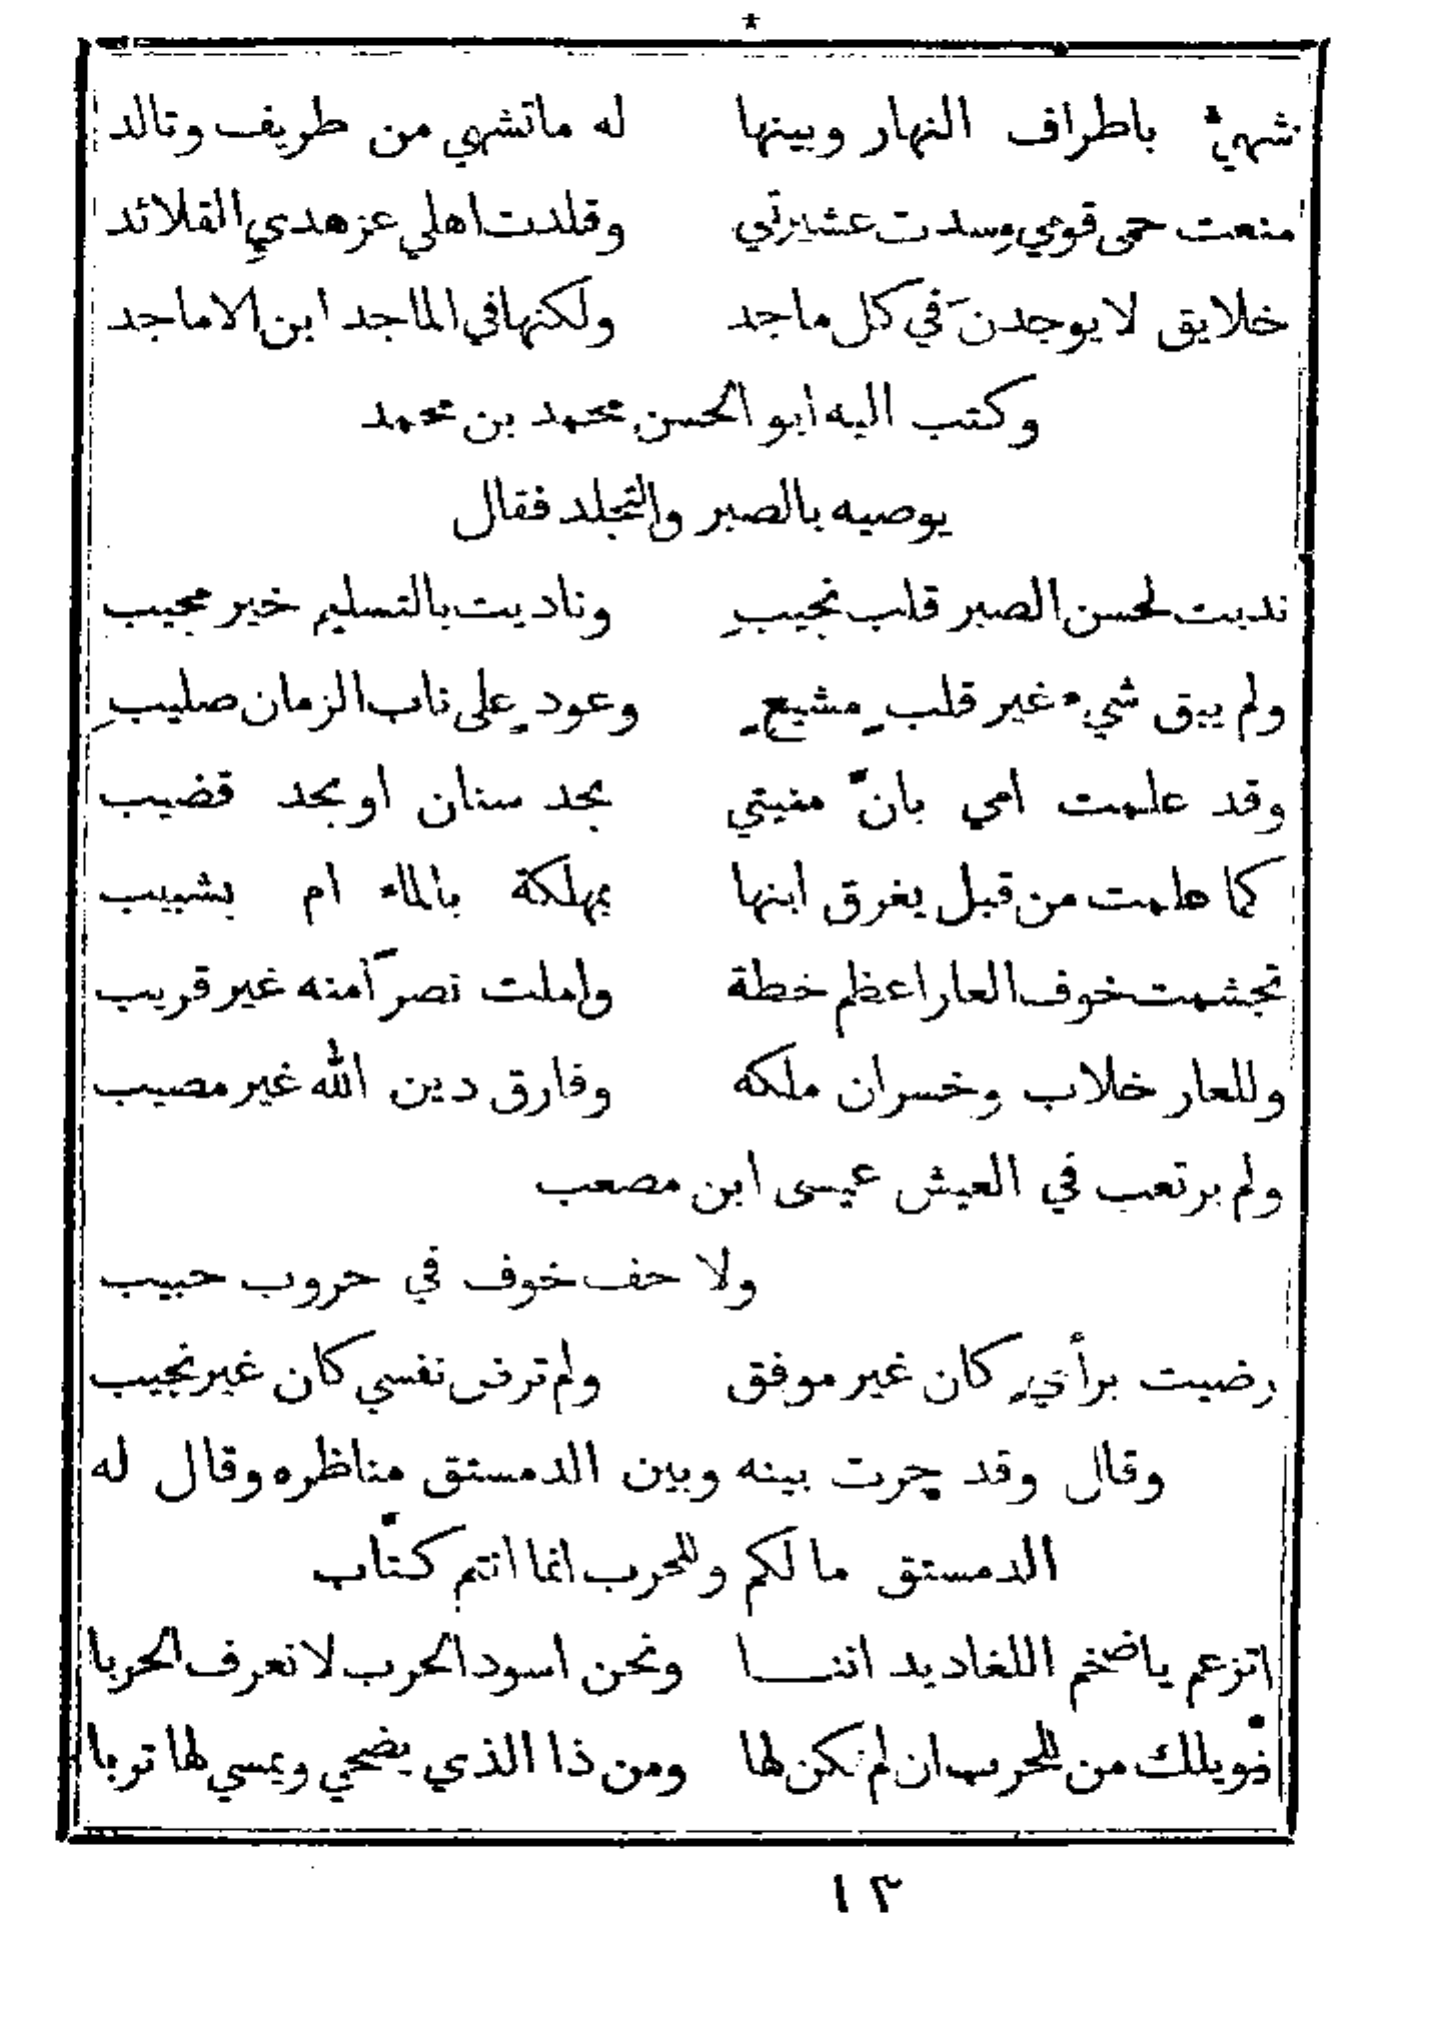 *
شهيٌّ باطراف النهار وبينها له ماتشهي من طريف وتالد
منعت حمى قومي وسدت عشيرتي وقلدت اهلي عز هدي القلائد
خلايق لا يوجدنَ في كل ماجد ولكنها في الماجد ابن الاماجد
وكتب اليه ابو الحسن محمد بن محمد
يوصيه بالصبر والتجلد فقال
ندبت لحسن الصبر قلب نجيبِ وناديت بالتسليم خير مجيب
ولم يبق شيء غير قلبٍ مشيعٍ وعودٍ على ناب الزمان صليبِ
وقد علمت امي بانّ منيتي بحد سنان او بحد قضيب
كما علمت من قبل يغرق ابنها بمهلكة بالماء ام بشبيب
تجشمت خوف العار اعظم خطة واملت نصرآ منه غير قريب
وللعار خلاب وخسران ملكه وفارق دين الله غير مصيب
ولم يرتعب في العيش عيسى ابن مصعب
ولا حف خوف في حروب حبيب
رضيت برأيٍ كان غير موفق ولم ترض نفسي كان غير نجيب
وقال وقد جرت بينه وبين الدمستق مناظره وقال له
الدمستق ما لكم وللحرب انما انتم كتّاب
اتزعم ياضخم اللغاديد اننـــا ونحن اسود الحرب لا نعرف الحربا
فويلك من للحرب ان لم نكن لها ومن ذا الذي يضحي ويمسي لها تربا
١٣